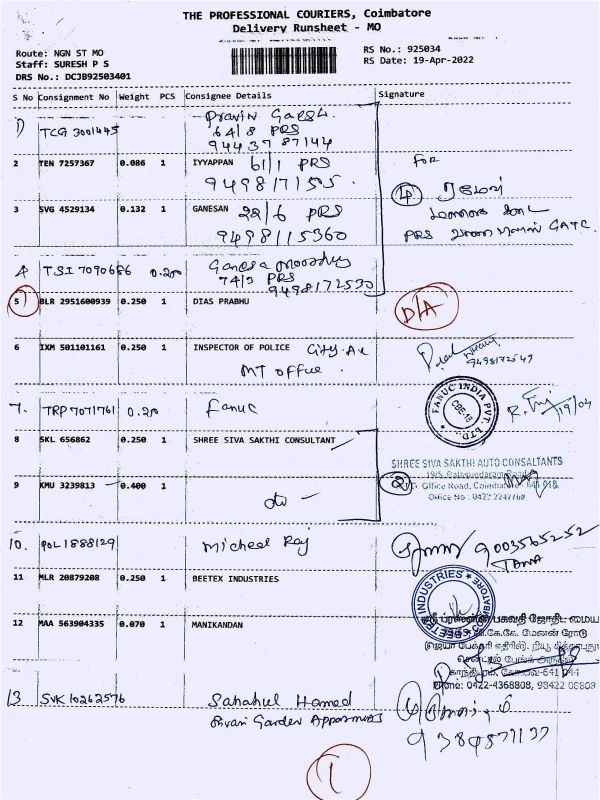 THE PROFESSIONAL COURIERS, Coimbatore
Delivery Runsheet - MO
Route: NGN ST MO
Staff: SURESH P S
DRS No.: DCJB92503401
RS No.: 925034
RS Date: 19-Apr-2022
S No Consignment No Weight PCS Consignee Details Signature
1) TCG 3001445 Pravin Ganesh.
64/8 PRS
94437 87144
2 TEN 7257367 0.086 1 IYYAPPAN 61/1 PRS
9498171505.
For
3 SVG 4529134 0.132 1 GANESAN 22/6 PRS
9498115360
4
PRS GATE.
4 TSI 7090686 0.200 Ganesa moorthy
74/3 PRS
9498172530
5 BLR 2951600939 0.250 1 DIAS PRABHU
D/A
6 IXM 501101161 0.250 1 INSPECTOR OF POLICE City. AR
MT office.
9498172547
7. TRP 7071761 0.200 Fanuc
FANUC INDIA PVT. LTD
CBE-18
19/04
8 SKL 656862 0.250 1 SHREE SIVA SAKTHI CONSULTANT
SHREE SIVA SAKTHI AUTO CONSALTANTS
19/5, Balasundaram Road
Office Road, Coimbatore 641 018.
Office No : 0422 2247768
9 KMU 3239813 0.400 1 do
2
10. POL1888129 Micheal Raj
9003565252
11 MLR 20879208 0.250 1 BEETEX INDUSTRIES
BEETEX INDUSTRIES
COIMBATORE
12 MAA 563904335 0.070 1 MANIKANDAN
ஸ்ரீ பிரஸன்ன பகவதி ஜோதிட மைய
கே.கே. மேனன் ரோடு
(ஜெயா பேக்கரி எதிரில்), நியூ சித்தாபுதூ
சென்ட்ரல் பேங்க் அருகில்
காந்திபுரம், கோவை-641 044
Phone: 0422-4368808, 98422 08808
13 SVK 10262576 Sahahul Hamed
Sivani Garden Appartments
9380871177
1